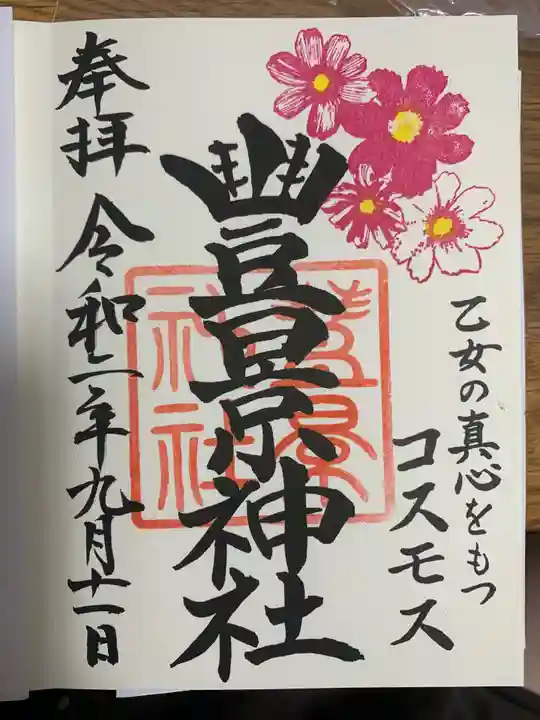 乙女の真心をもつ
コスモス
豐景神社
豊景
神社
奉拝
令和二年九月十一日